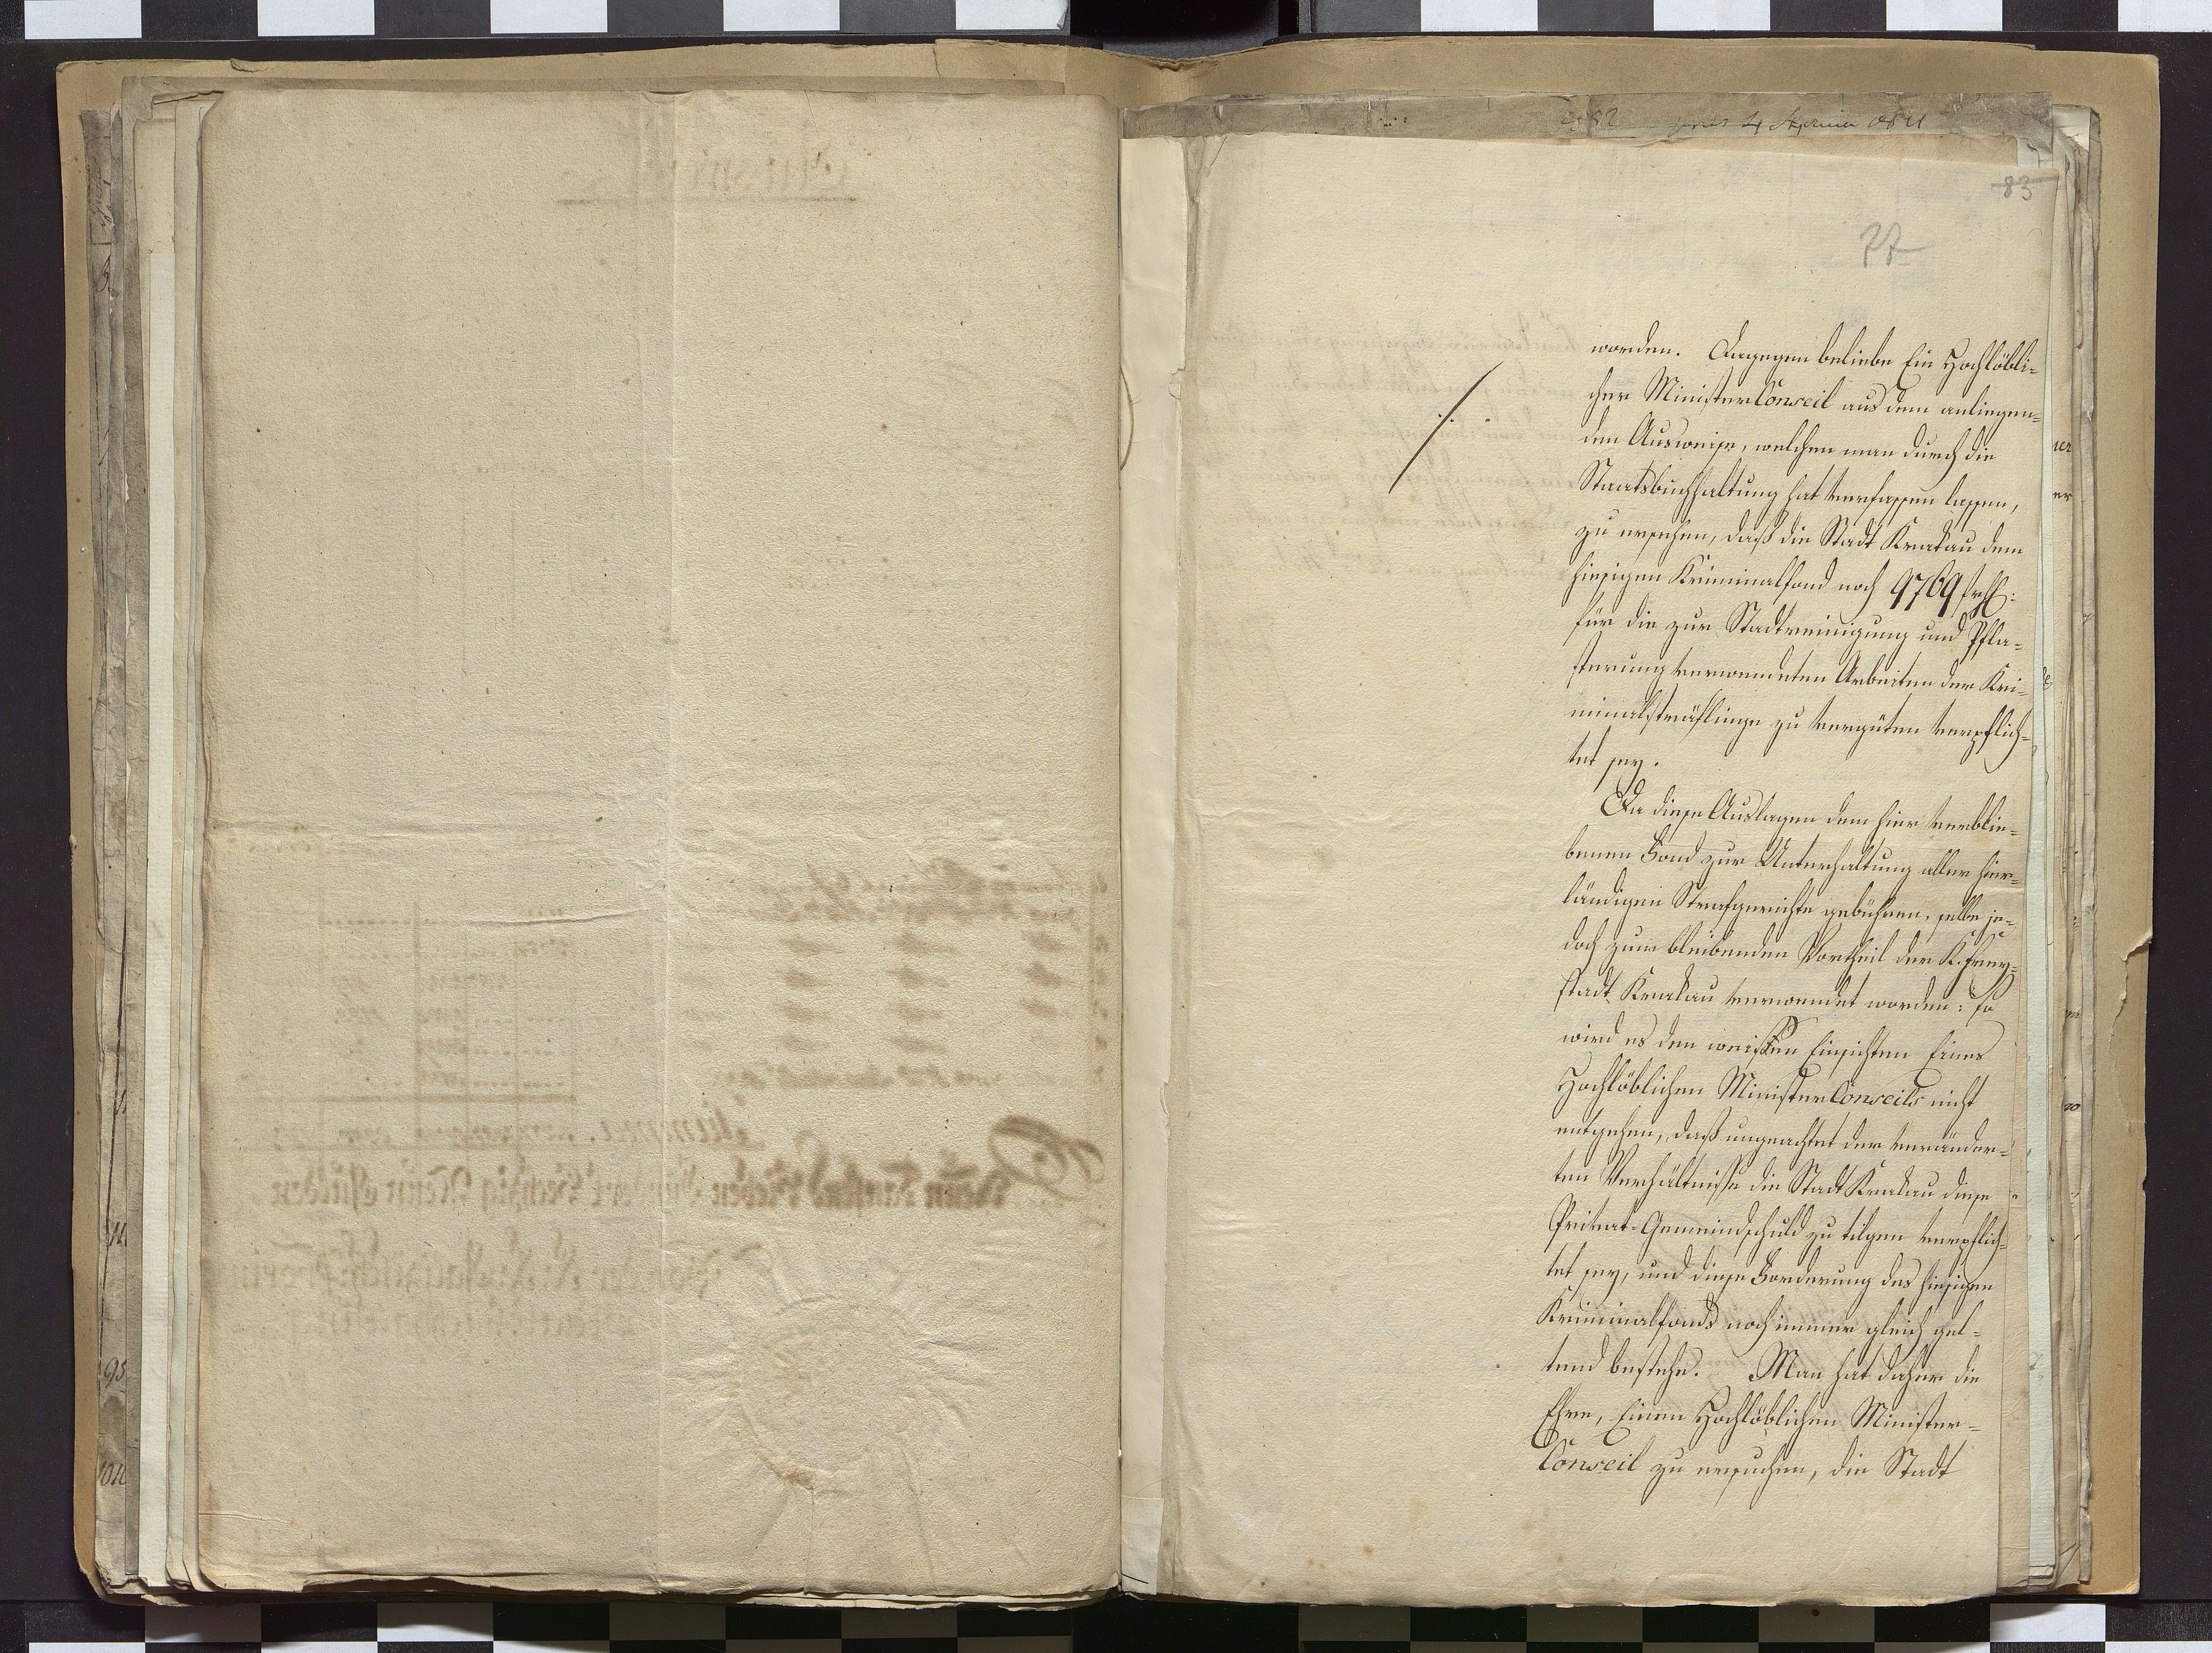 83
77
worden. Dagegen beliebe Ein Hochlöbli-
cher MinisterConseil aus dem anliegen-
den Ausweise, welchen man durch die
Staatsbuchhaltung hat verfassen lassen,
zu ersehen, daß die Stadt Krakau dem
hiesigen Kriminalfond noch 9769 frl:
für die zur Stadtreinigung und Pfla-
sterung verwendeten Arbeiten der Kri-
minalsträflinge zu vergüten verpflich-
tet sey.
Da diese Auslagen dem hier verblie-
benen Fond zur Unterhaltung aller hier-
ländigen Strafgerichte gebühren, selbe je-
doch zum bleibenden Vortheil der K. Frey-
stadt Krakau verwendet worden: so
wird es den weisen Einsichten Eines
Hochlöblichen MinisterConseils nicht
entgehen, daß ungeachtet der veränder-
ten Verhältnisse die Stadt Krakau diese
Privat-Gemeindschuld zu tilgen verpflich-
tet sey, und diese Forderung des hiesigen
Kriminalfonds noch immer gleich gel-
tend bestehe. Man hat daher die
Ehre, Einen Hochlöblichen Minister-
Conseil zu ersuchen, die Stadt